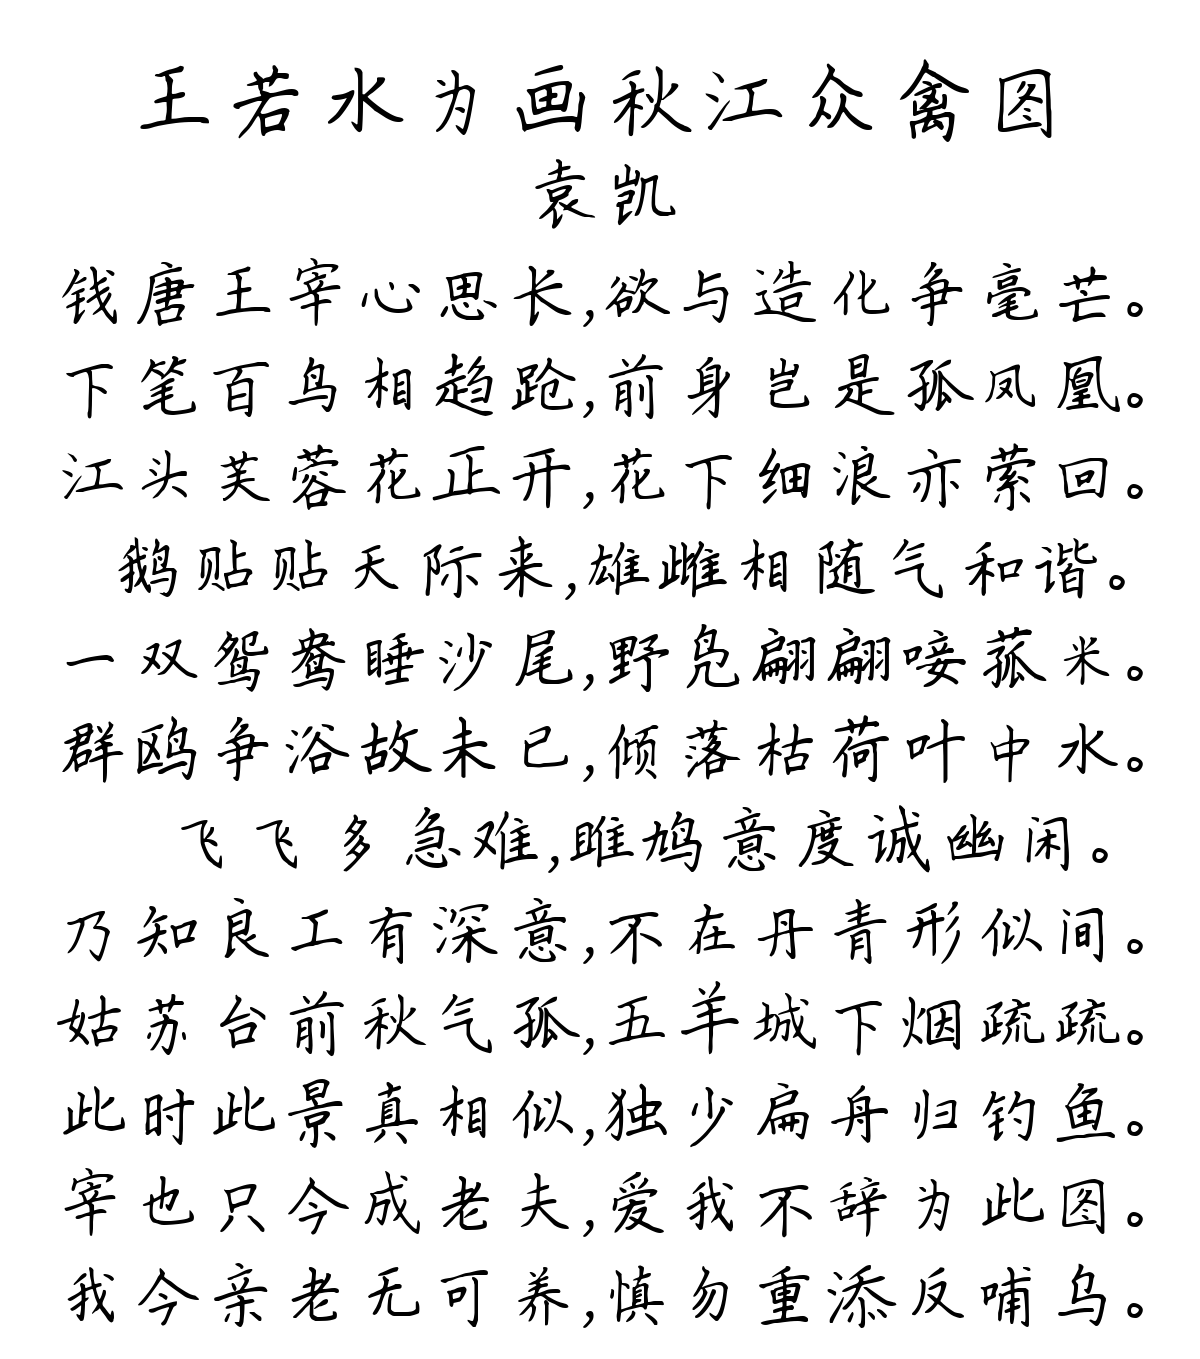 王若水为画秋江众禽图
袁凯
钱唐王宰心思长,欲与造化争毫芒。
下笔百鸟相趋跄,前身岂是孤凤凰。
江头芙蓉花正开,花下细浪亦萦回。
鹅贴贴天际来,雄雌相随气和谐。
一双鸳鸯睡沙尾,野凫翩翩唼菰米。
群鸥争浴故未已,倾落枯荷叶中水。
飞飞多急难,雎鸠意度诚幽闲。
乃知良工有深意,不在丹青形似间。
姑苏台前秋气孤,五羊城下烟疏疏。
此时此景真相似,独少扁舟归钓鱼。
宰也只今成老夫,爱我不辞为此图。
我今亲老无可养,慎勿重添反哺乌。